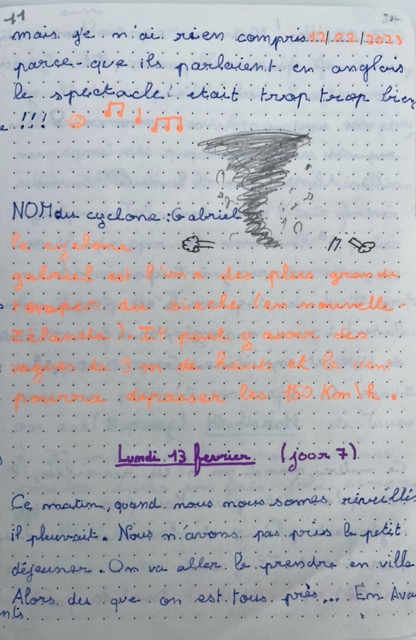 11
mais je n'ai rien compris 12/02/2023
parce-que ils parlaient en anglais
le spectacle était trop trop bien
!!!
NOM du cyclone : Gabriel
le cyclone
gabriel est l'une des plus grande
du siècle (en nouvelle-
zélande). Il peut y avoir des
vagues de 3 m de haut et le ven
pourra dépasser les 150 Km/h.
Lundi 13 fevrier (jour 7)
Ce matin, quand nous nous somes réveillés
il pleuvait. Nous n'avons pas pris le petit
déjeuner. On va aller le prendre en ville
Alors du que on est tous près... En Ava
nts.